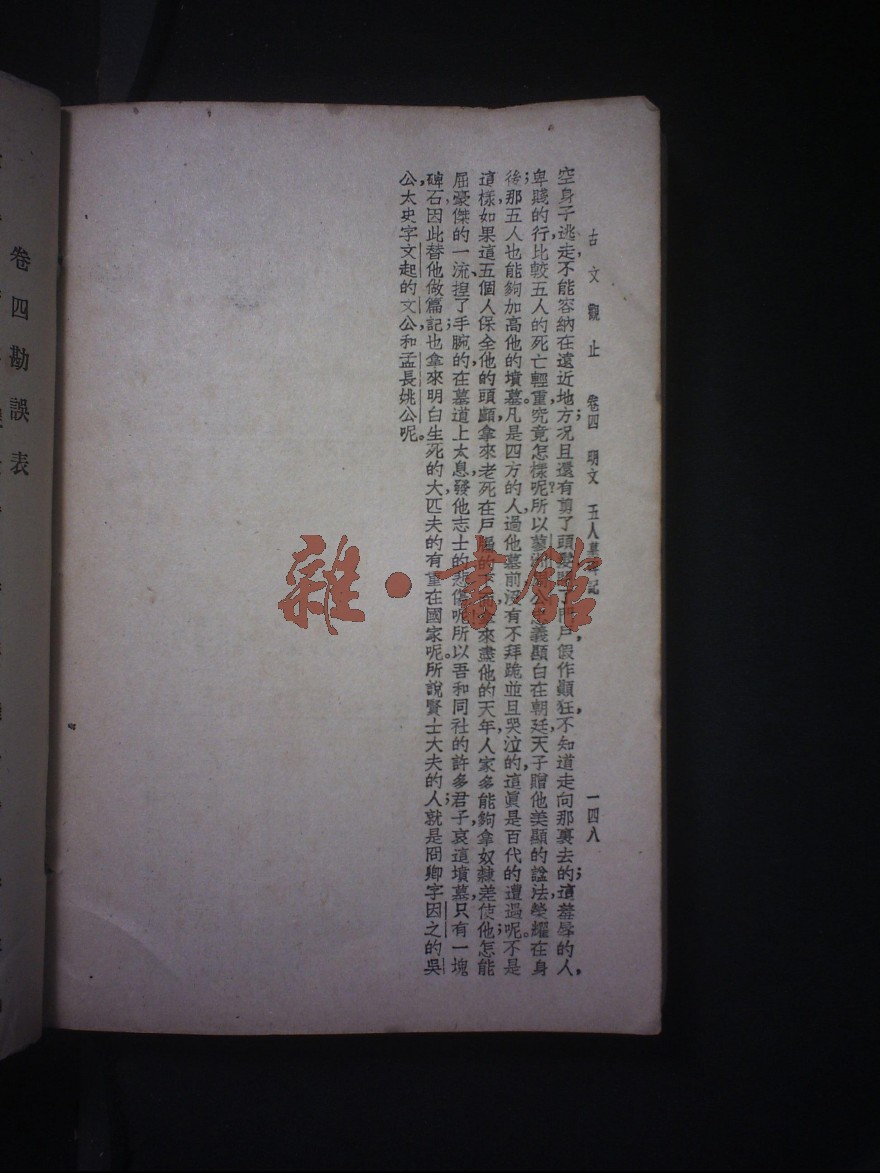 古文觀止 卷四 明文 五人墓 記 一四八
空身子逃走,不能容納在遠近地方;況且還有剪了頭髮 了門戶,假作顚狂,不知道走向那裏去的;這羞辱的人,
卑賤的行,比較五人的死亡,輕重究竟怎樣呢?所以蓼洲周公 義顯白在朝廷,天子贈他美顯的諡法,榮耀在身
後;那五人也能夠加高他的墳墓。凡是四方的人,過他墓前,沒有不拜跪並且哭泣的,這眞是百代的遭遇呢。不是
這樣,如果這五個人保全他的頭顱,拿來老死在戶牖的 來盡他的天年,人家多能夠拿奴隸差使他;怎能
屈豪傑的一流,揑了手腕的在墓道上太息,發他志士的悲傷呢?所以吾和同社的許多君子,哀這墳墓,只有一塊
碑石,因此替他做篇記;也拿來明白生死的大,匹夫的有重在國家呢。所說賢士大夫的人;就是冏卿字因之的吳
公,太史字文起的文公,和孟長姚公呢。
卷四勘誤表
雜·書館